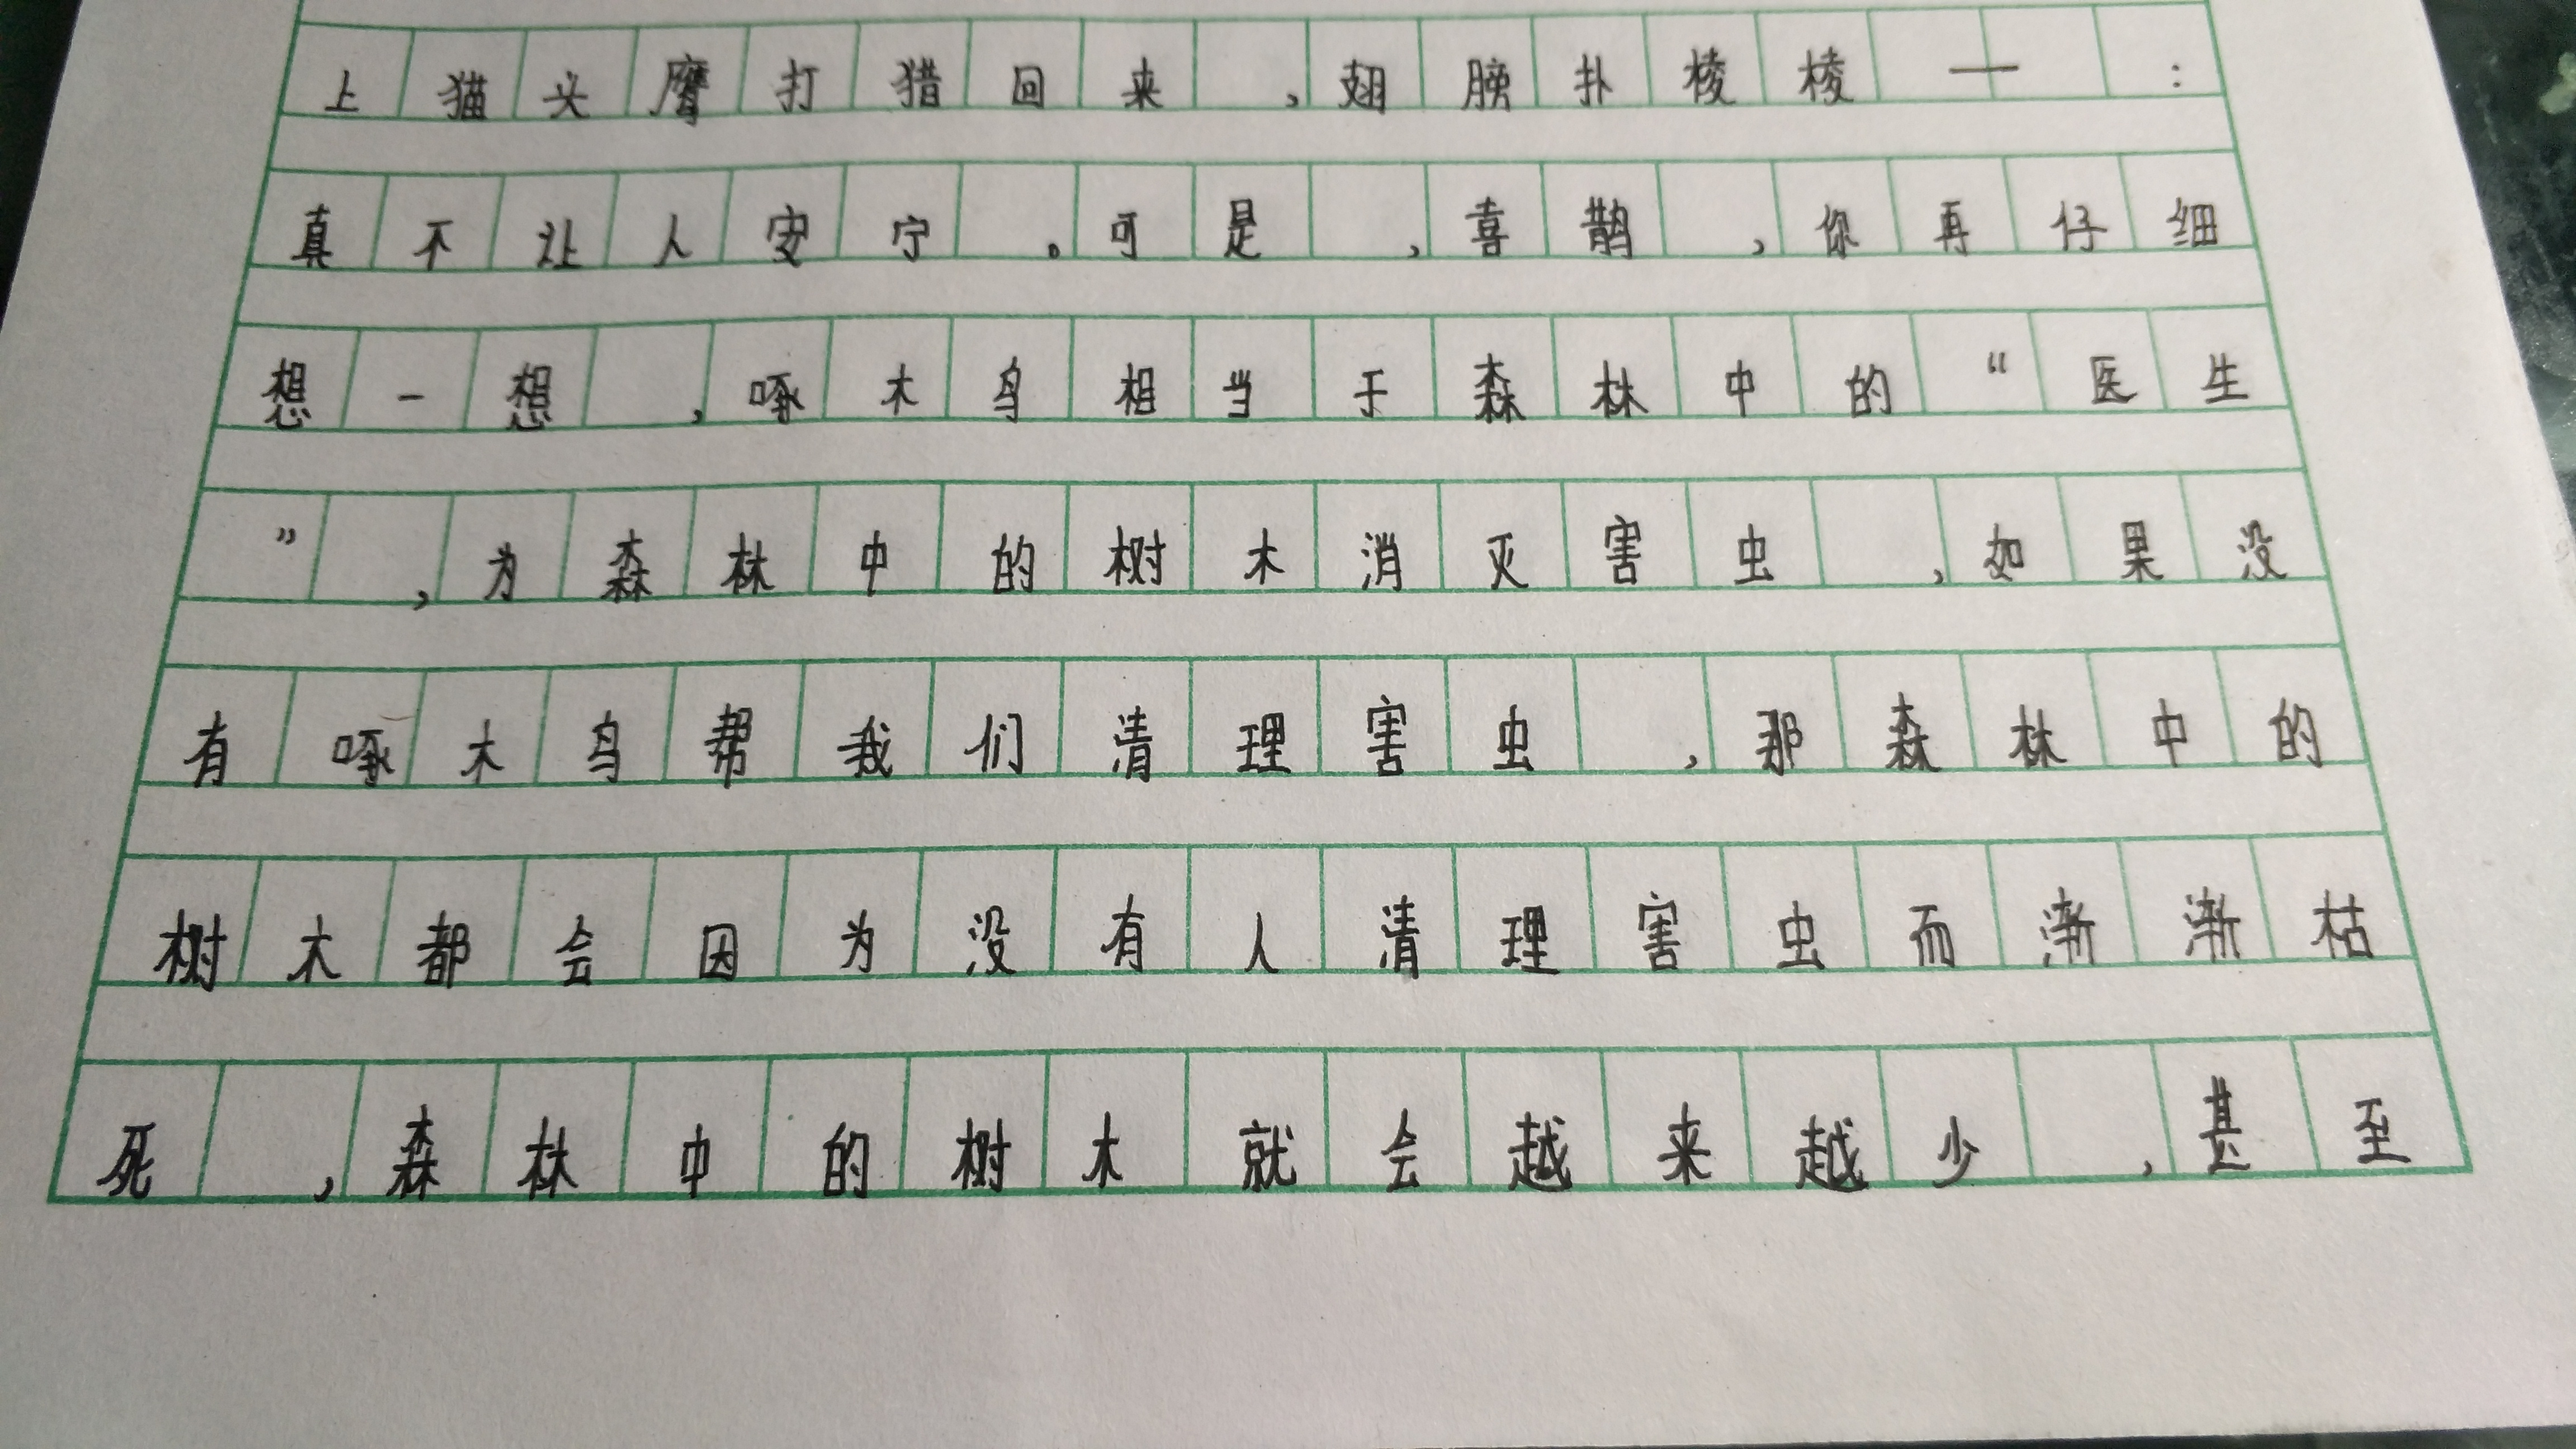 上猫头鹰打猎回来，翅膀扑棱棱——：
真不让人安宁。可是，喜鹊，你再仔细
想一想，啄木鸟相当于森林中的“医生
”，为森林中的树木消灭害虫，如果没
有啄木鸟帮我们清理害虫，那森林中的
树木都会因为没有人清理害虫而渐渐枯
死，森林中的树木就会越来越少，甚至